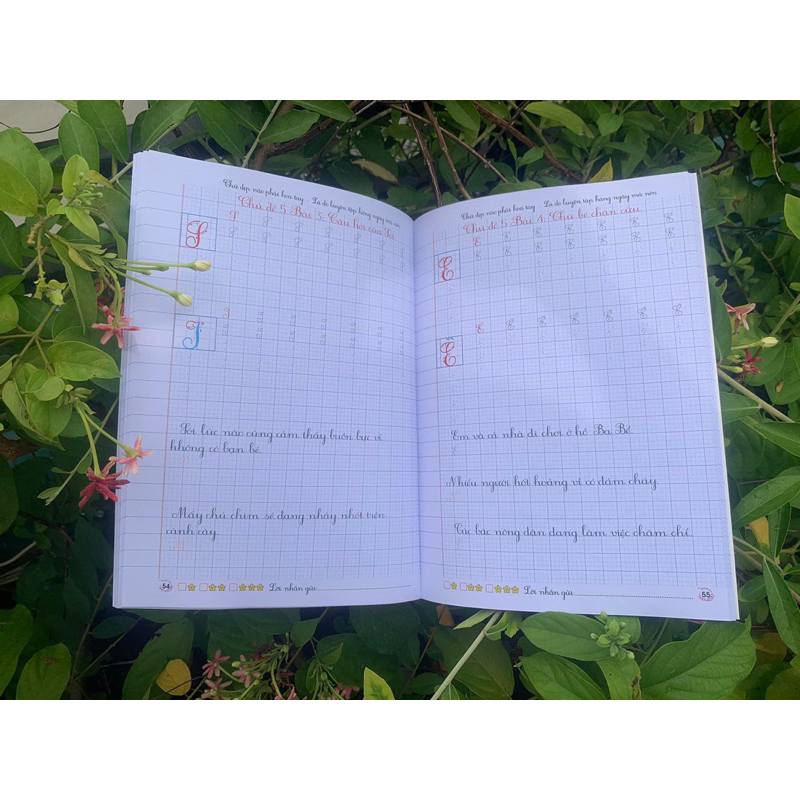 Chữ đẹp nào phải hoa tay Là do luyện tập hàng ngày mà nên
Chủ đề 5 Bài 5: Câu hỏi của Sói
S
S
I
I
Sói lúc nào cũng cảm thấy buồn bực vì
không có bạn bè.
Mấy chú chim sẻ đang nhảy nhót trên
cành cây.
54
Lời nhắn gửi:
Chữ đẹp nào phải hoa tay Là do luyện tập hàng ngày mà nên
Chủ đề 5 Bài 4: Chú bé chăn cừu
E
E
Ê
Ê
Em và cả nhà đi chơi ở hồ Ba Bể.
Nhiều người hốt hoảng vì có đám cháy.
Các bác nông dân đang làm việc chăm chỉ.
Lời nhắn gửi:
55